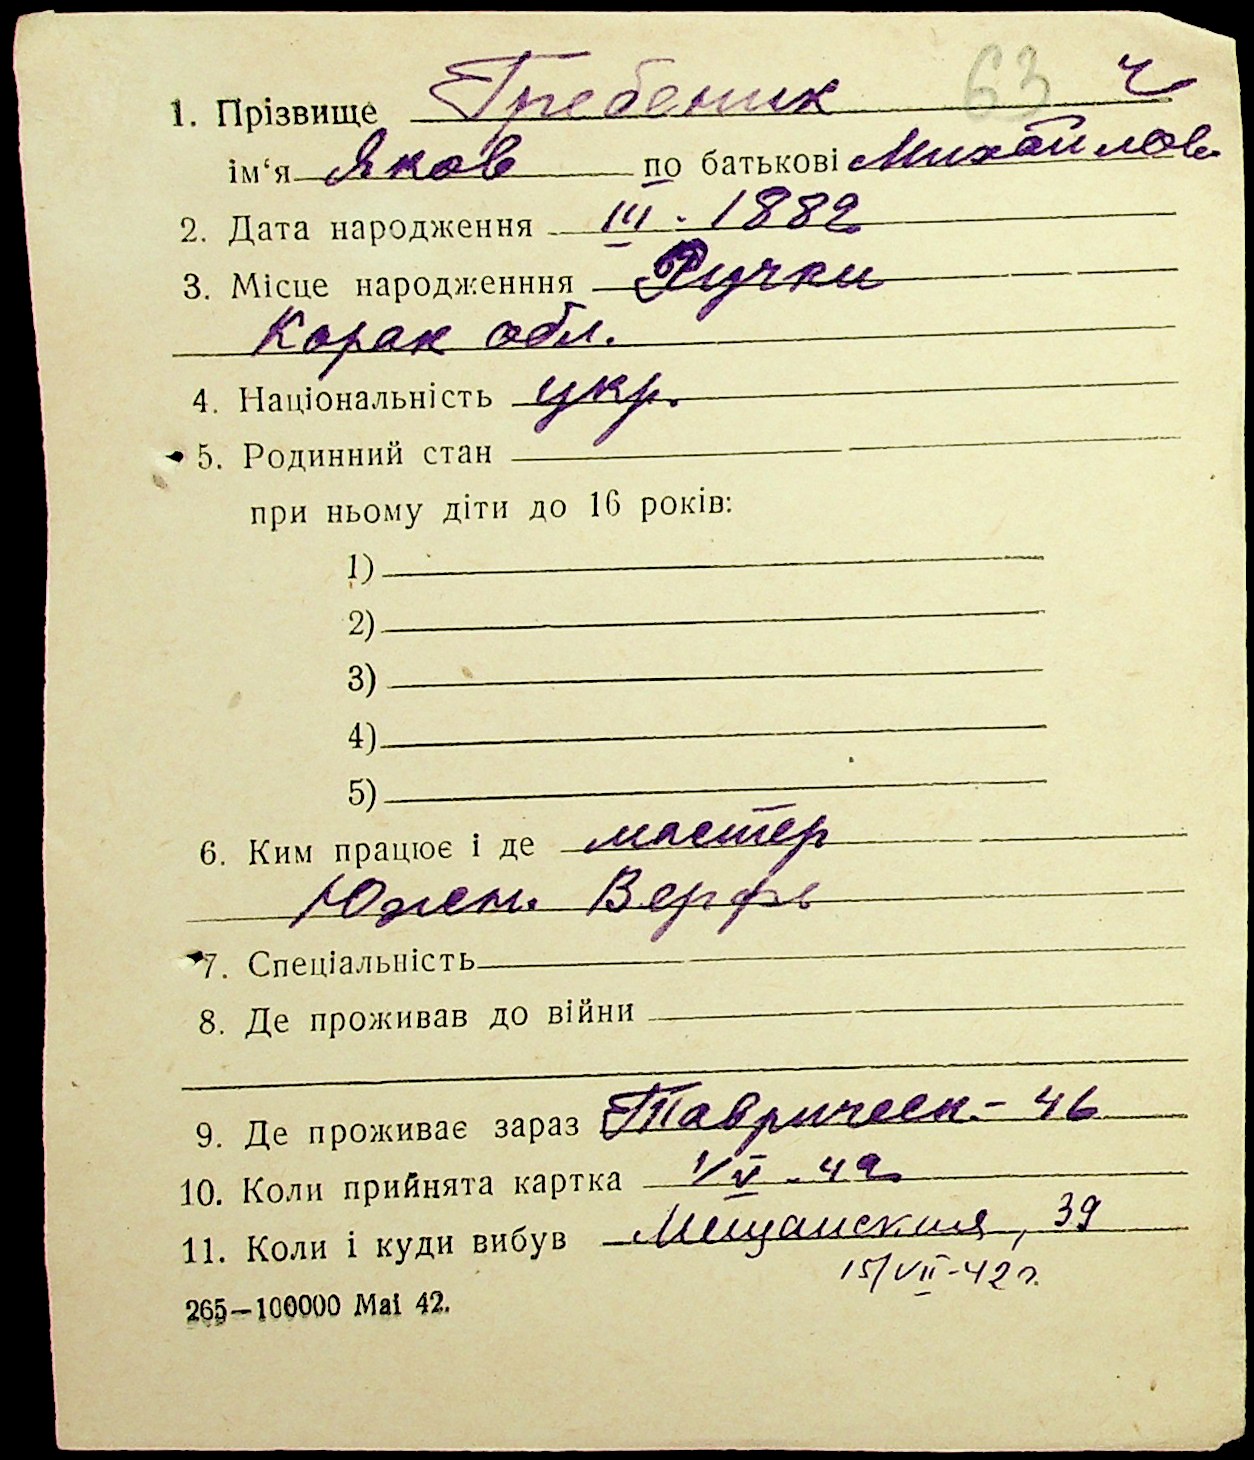 63 ч
1. Прізвище Гребеник
ім‘я Яков по батькові Михайлов.
2. Дата народження III - 1882
3. Місце народженння Ручки
обл.
4. Національність укр.
5. Родинний стан
при ньому діти до 16 років:
1)
2)
3)
4)
5)
6. Ким працює і де мастер
Южн. Верфь
7. Спеціальність
8. Де проживав до війни
9. Де проживає зараз Таврическ. - 46
10. Коли прийнята картка 1/V - 42
11. Коли і куди вибув Мещанская, 39
15/VII-42 г.
265—100000 Mai 42.